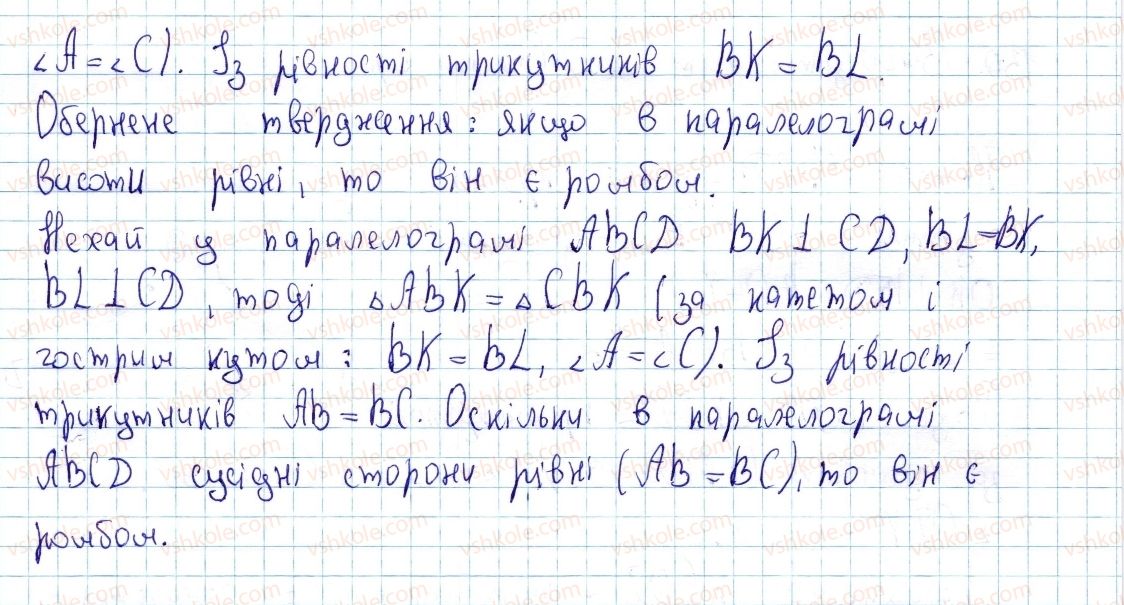 ∠A = ∠C). Із рівності трикутників BK = BL.
Обернене твердження: якщо в паралелограмі
висоти рівні, то він є ромбом.
Нехай у паралелограмі ABCD BK ⊥ CD, BL = BK,
BL ⊥ CD, тоді △ABK = △CBK (за катетом і
гострим кутом: BK = BL, ∠A = ∠C). Із рівності
трикутників AB = BC. Оскільки в паралелограмі
ABCD сусідні сторони рівні (AB = BC), то він є
ромбом.